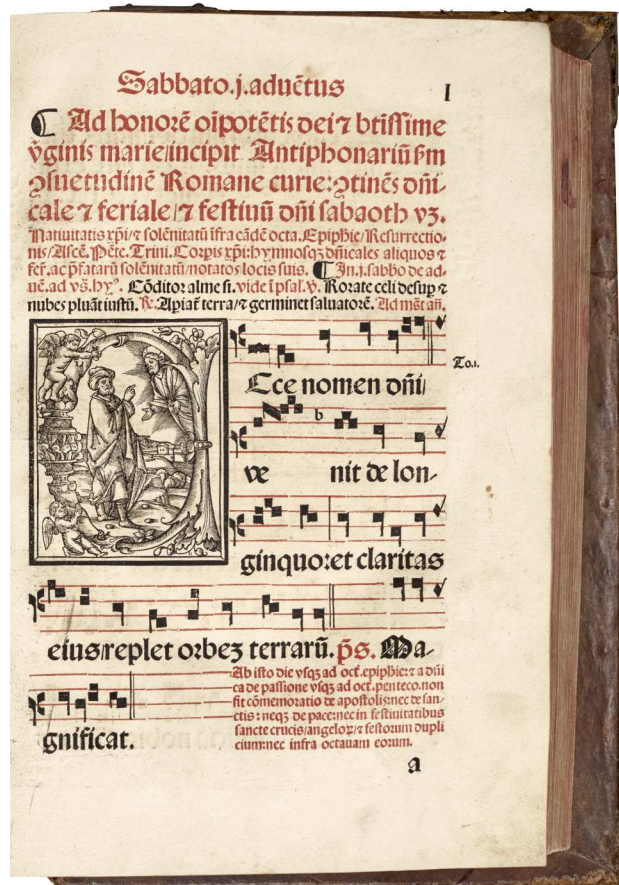 Sabbato.j.aduētus
I
Ad honorē oīpotētis dei ⁊ btīssime
v̄ginis marie/incipit Antiphonariū ẜm
ꝯsuetudinē Romane curie: ꝯtinēs dñi-
cale ⁊ feriale/⁊ festiuū dñi sabaoth vꝫ.
Natiuitatis xp̄i/⁊ solēnitatū īfra eādē octa. Epiphīe/Resurrectio-
nis/Ascē. Pētc. Trini. Corpis xp̄i: hymnosqꝫ dñicales aliquos ⁊
fer̄. ac p̄fatarū solēnitatū/notatos locis suis. In.j.sabbo de ad-
uē. ad vs̄. hyꝰ. Cōditor alme si. vide ī psal. v̄. Rorate celi desuꝑ ⁊
nubes pluāt iustū. ℟. Aꝑiat̄ terra/⁊ germinet saluatorē. Ad mḡt añ.
To.i.
Cce nomen dñi/
b
ve nit de lon-
ginquo: et claritas
eius/replet orbeꝫ terrarū. p̄s. Ma-
gnificat.
Ab isto die vsqꝫ ad oct̄. epiphīe: ⁊ a dñi
ca de passione vsqꝫ ad oct̄. penteco. non
fit cōmemoratio de apostolis: nec de san-
ctis: neqꝫ de pace: nec in festiuitatibus
sancte crucis/angeloꝝ/⁊ festorum dupli
cium: nec infra octauam eorum.
a